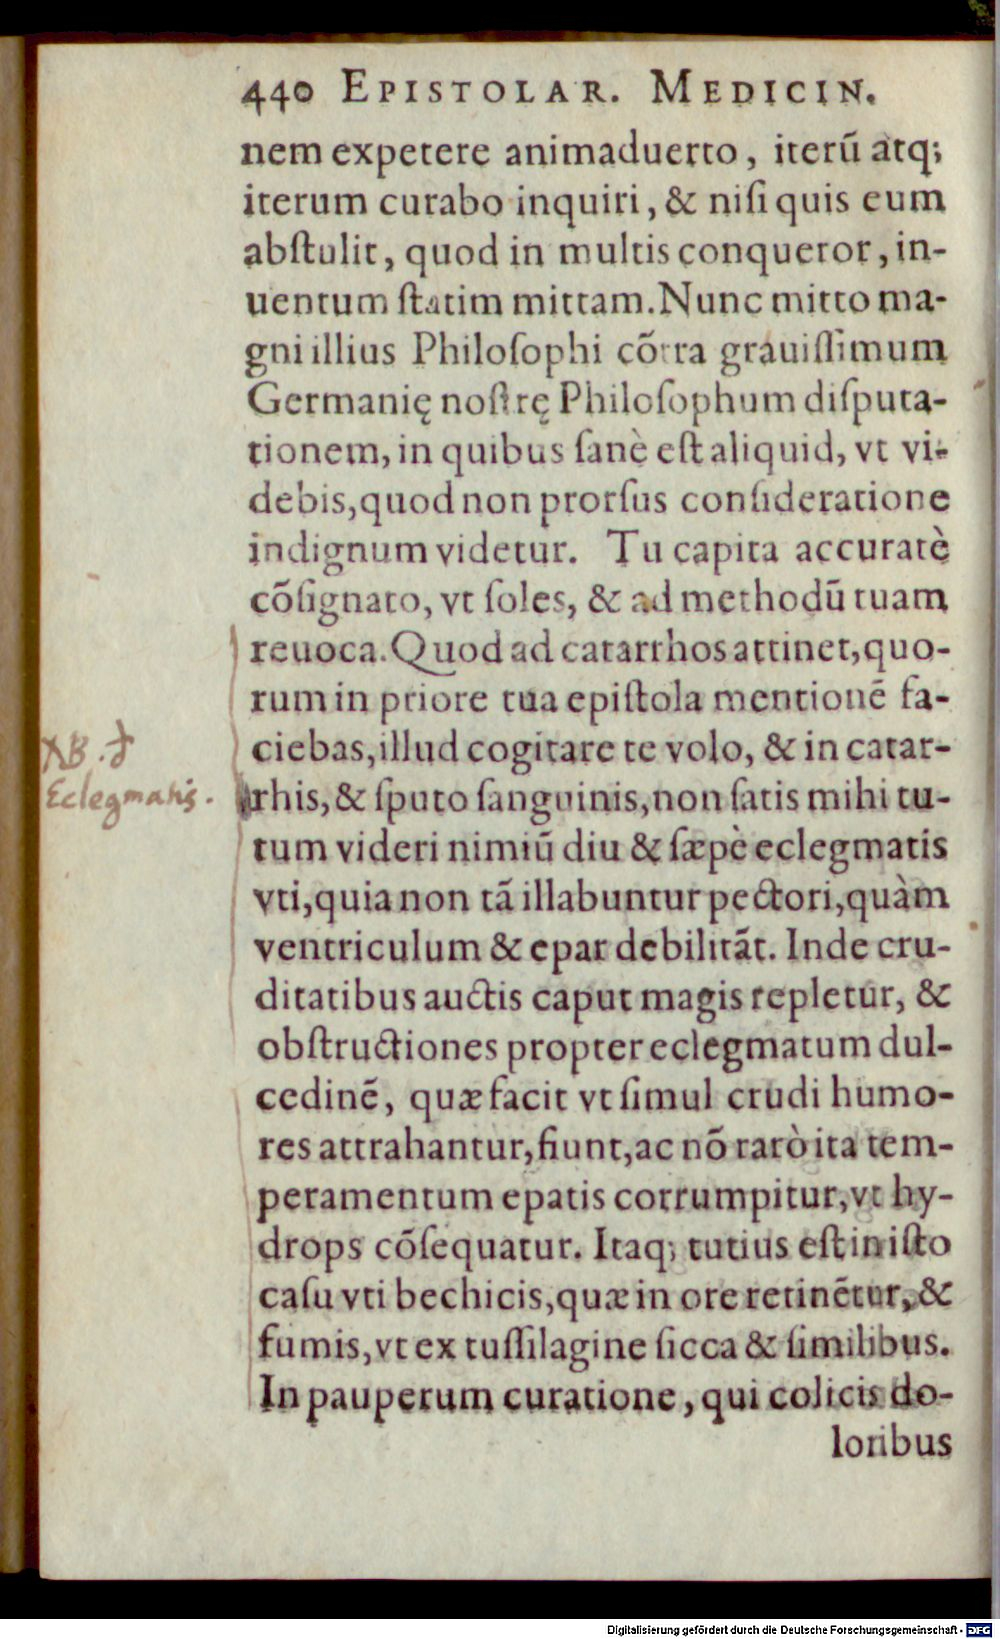 440 EPISTOLAR. MEDICIN.
nem expetere animaduerto, iterũ atq;
iterum curabo inquiri, & niſi quis eum
abſtulit, quod in multis conqueror, in-
uentum ſtatim mittam. Nunc mitto ma-
gni illius Philoſophi cõtra grauiſſimum
Germanię noſtrę Philoſophum diſputa-
tionem, in quibus ſanè eſt aliquid, vt vi-
debis, quod non prorſus conſideratione
indignum videtur. Tu capita accuratè
cõſignato, vt ſoles, & ad methodũ tuam
reuoca. Quod ad catarrhos attinet, quo-
rum in priore tua epiſtola mentionẽ fa-
ciebas, illud cogitare te volo, & in catar-
NB. de
Eclegmatis.
rhis, & ſputo ſanguinis, non ſatis mihi tu-
tum videri nimiũ diu & ſæpè eclegmatis
vti, quia non tã illabuntur pectori, quàm
ventriculum & epar debilitãt. Inde cru-
ditatibus auctis caput magis repletur, &
obſtructiones propter eclegmatum dul-
cedinẽ, quæ facit vt ſimul crudi humo-
res attrahantur, fiunt, ac nõ rarò ita tem-
peramentum epatis corrumpitur, vt hy-
drops cõſequatur. Itaq; tutius eſt in iſto
caſu vti bechicis, quæ in ore retinẽtur, &
fumis, vt ex tuſſilagine ſicca & ſimilibus.
In pauperum curatione, qui colicis do-
loribus
Digitalisierung gefördert durch die Deutsche Forschungsgemeinschaft - DFG